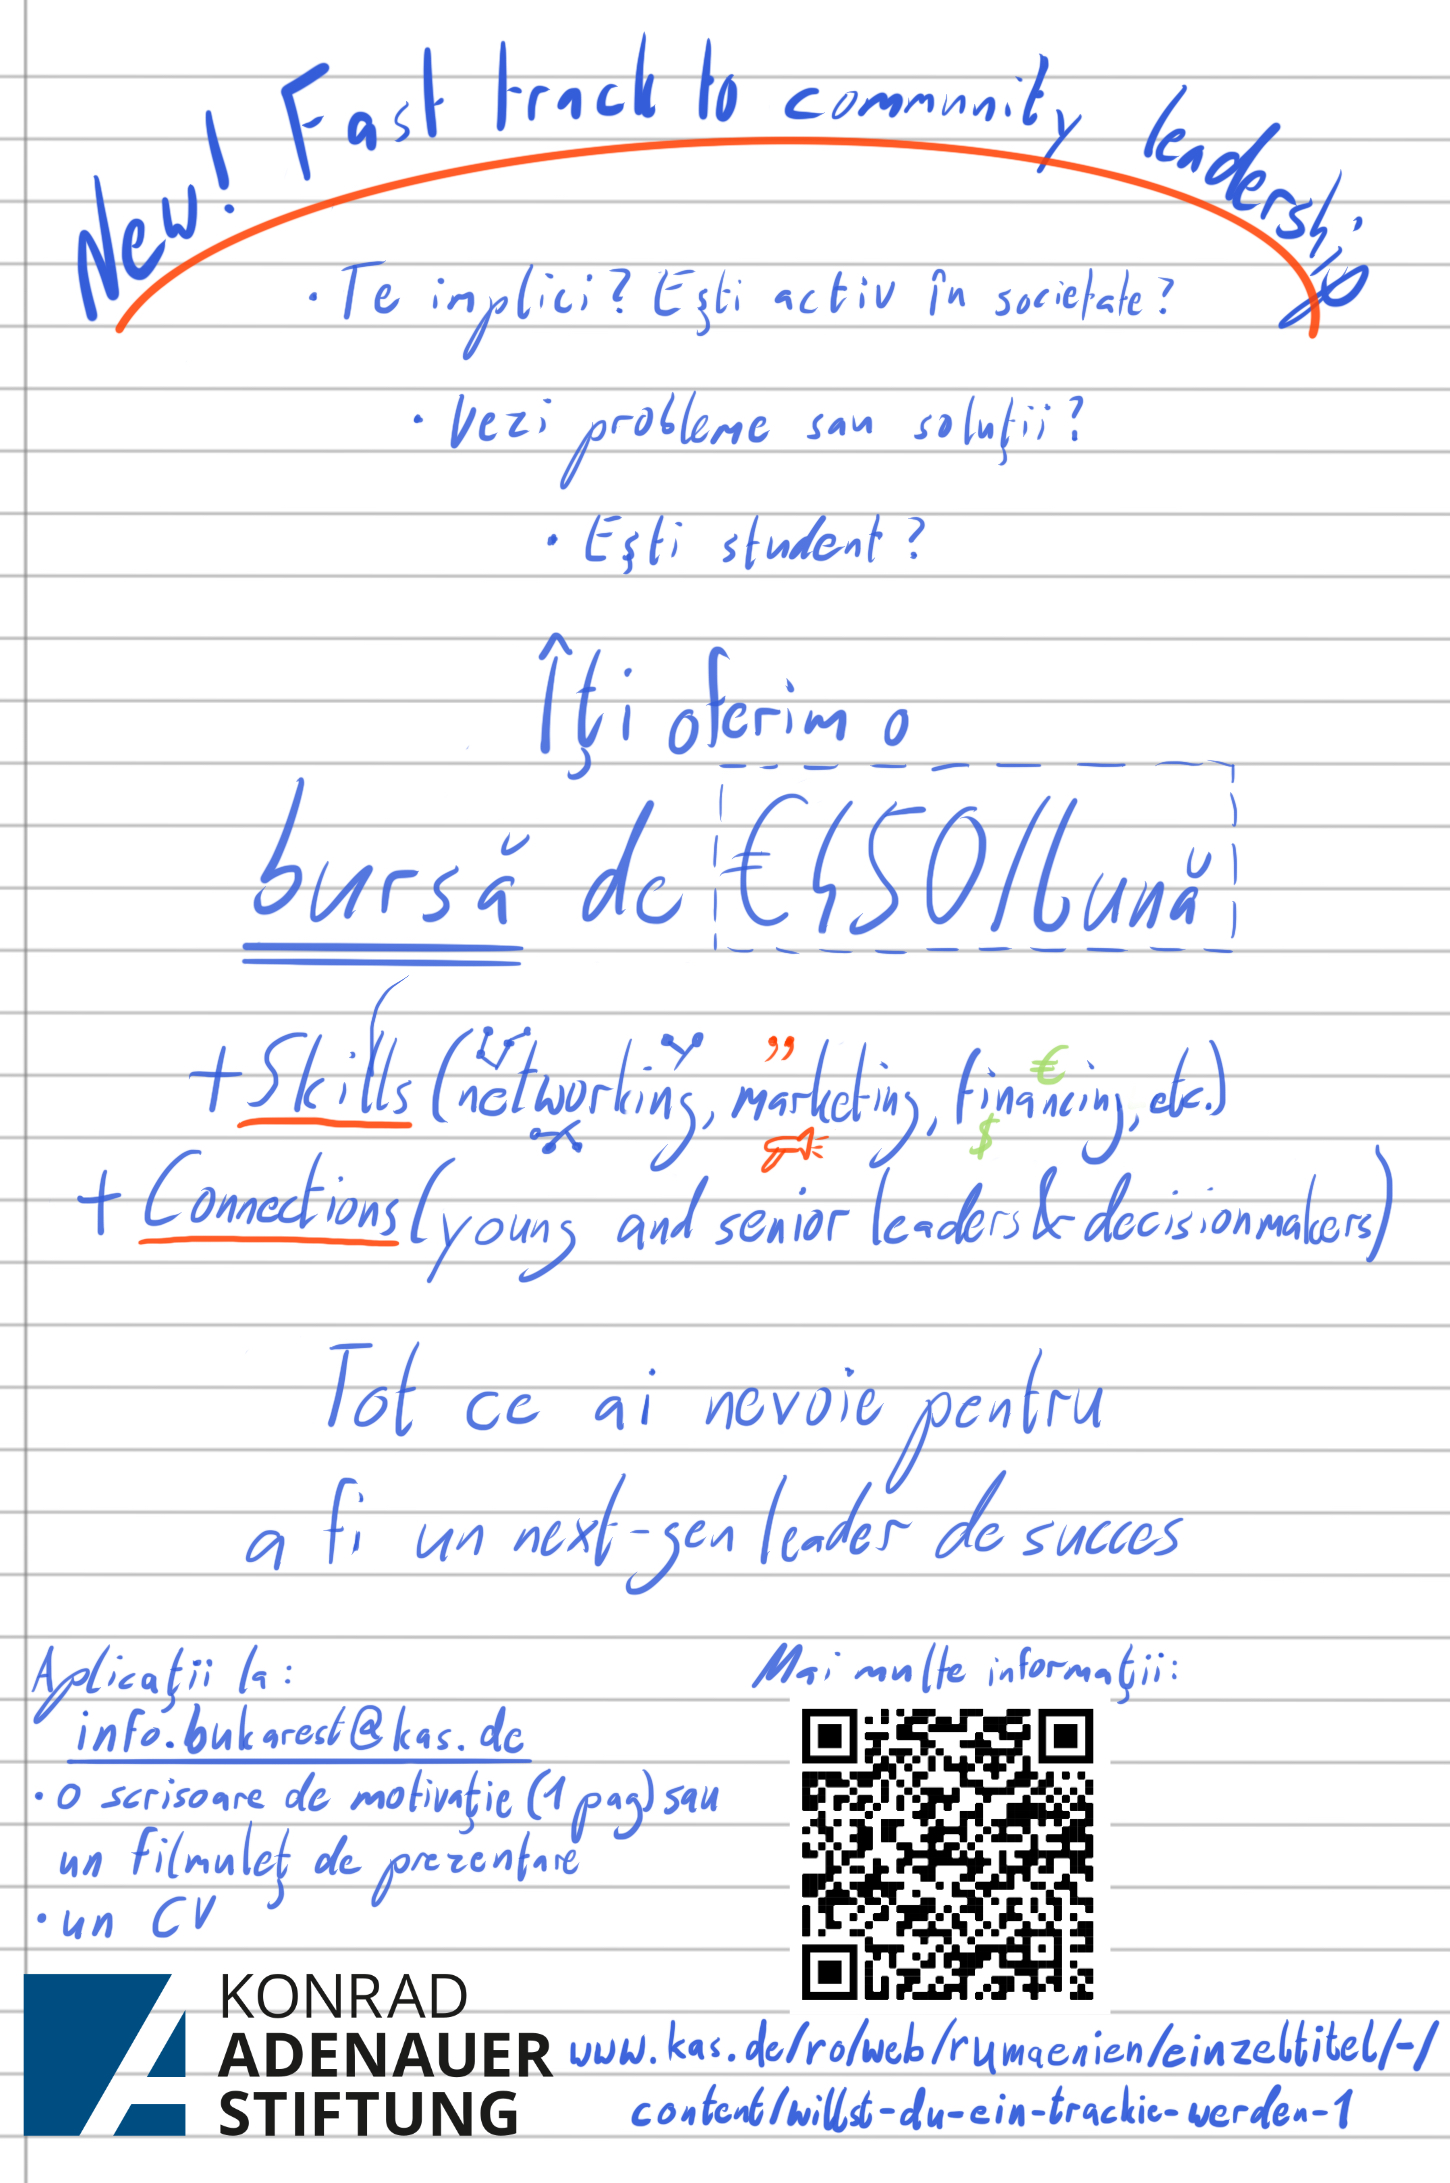 New! Fast track to community leadership
• Te implici? Ești activ în societate?
• Vezi probleme sau soluții?
• Ești student?
Îți oferim o
bursă de €450/lună
+ Skills (networking, marketing, financing, etc.)
+ Connections (young and senior leaders & decisionmakers)
Tot ce ai nevoie pentru
a fi un next-gen leader de succes
Aplicații la:
info.bukarest@kas.de
• o scrisoare de motivație (1 pag) sau
un filmuleț de prezentare
• un CV
Mai multe informații:
KONRAD
ADENAUER
STIFTUNG
www.kas.de/ro/web/rumaenien/einzeltitel/-/
content/willst-du-ein-trackie-werden-1